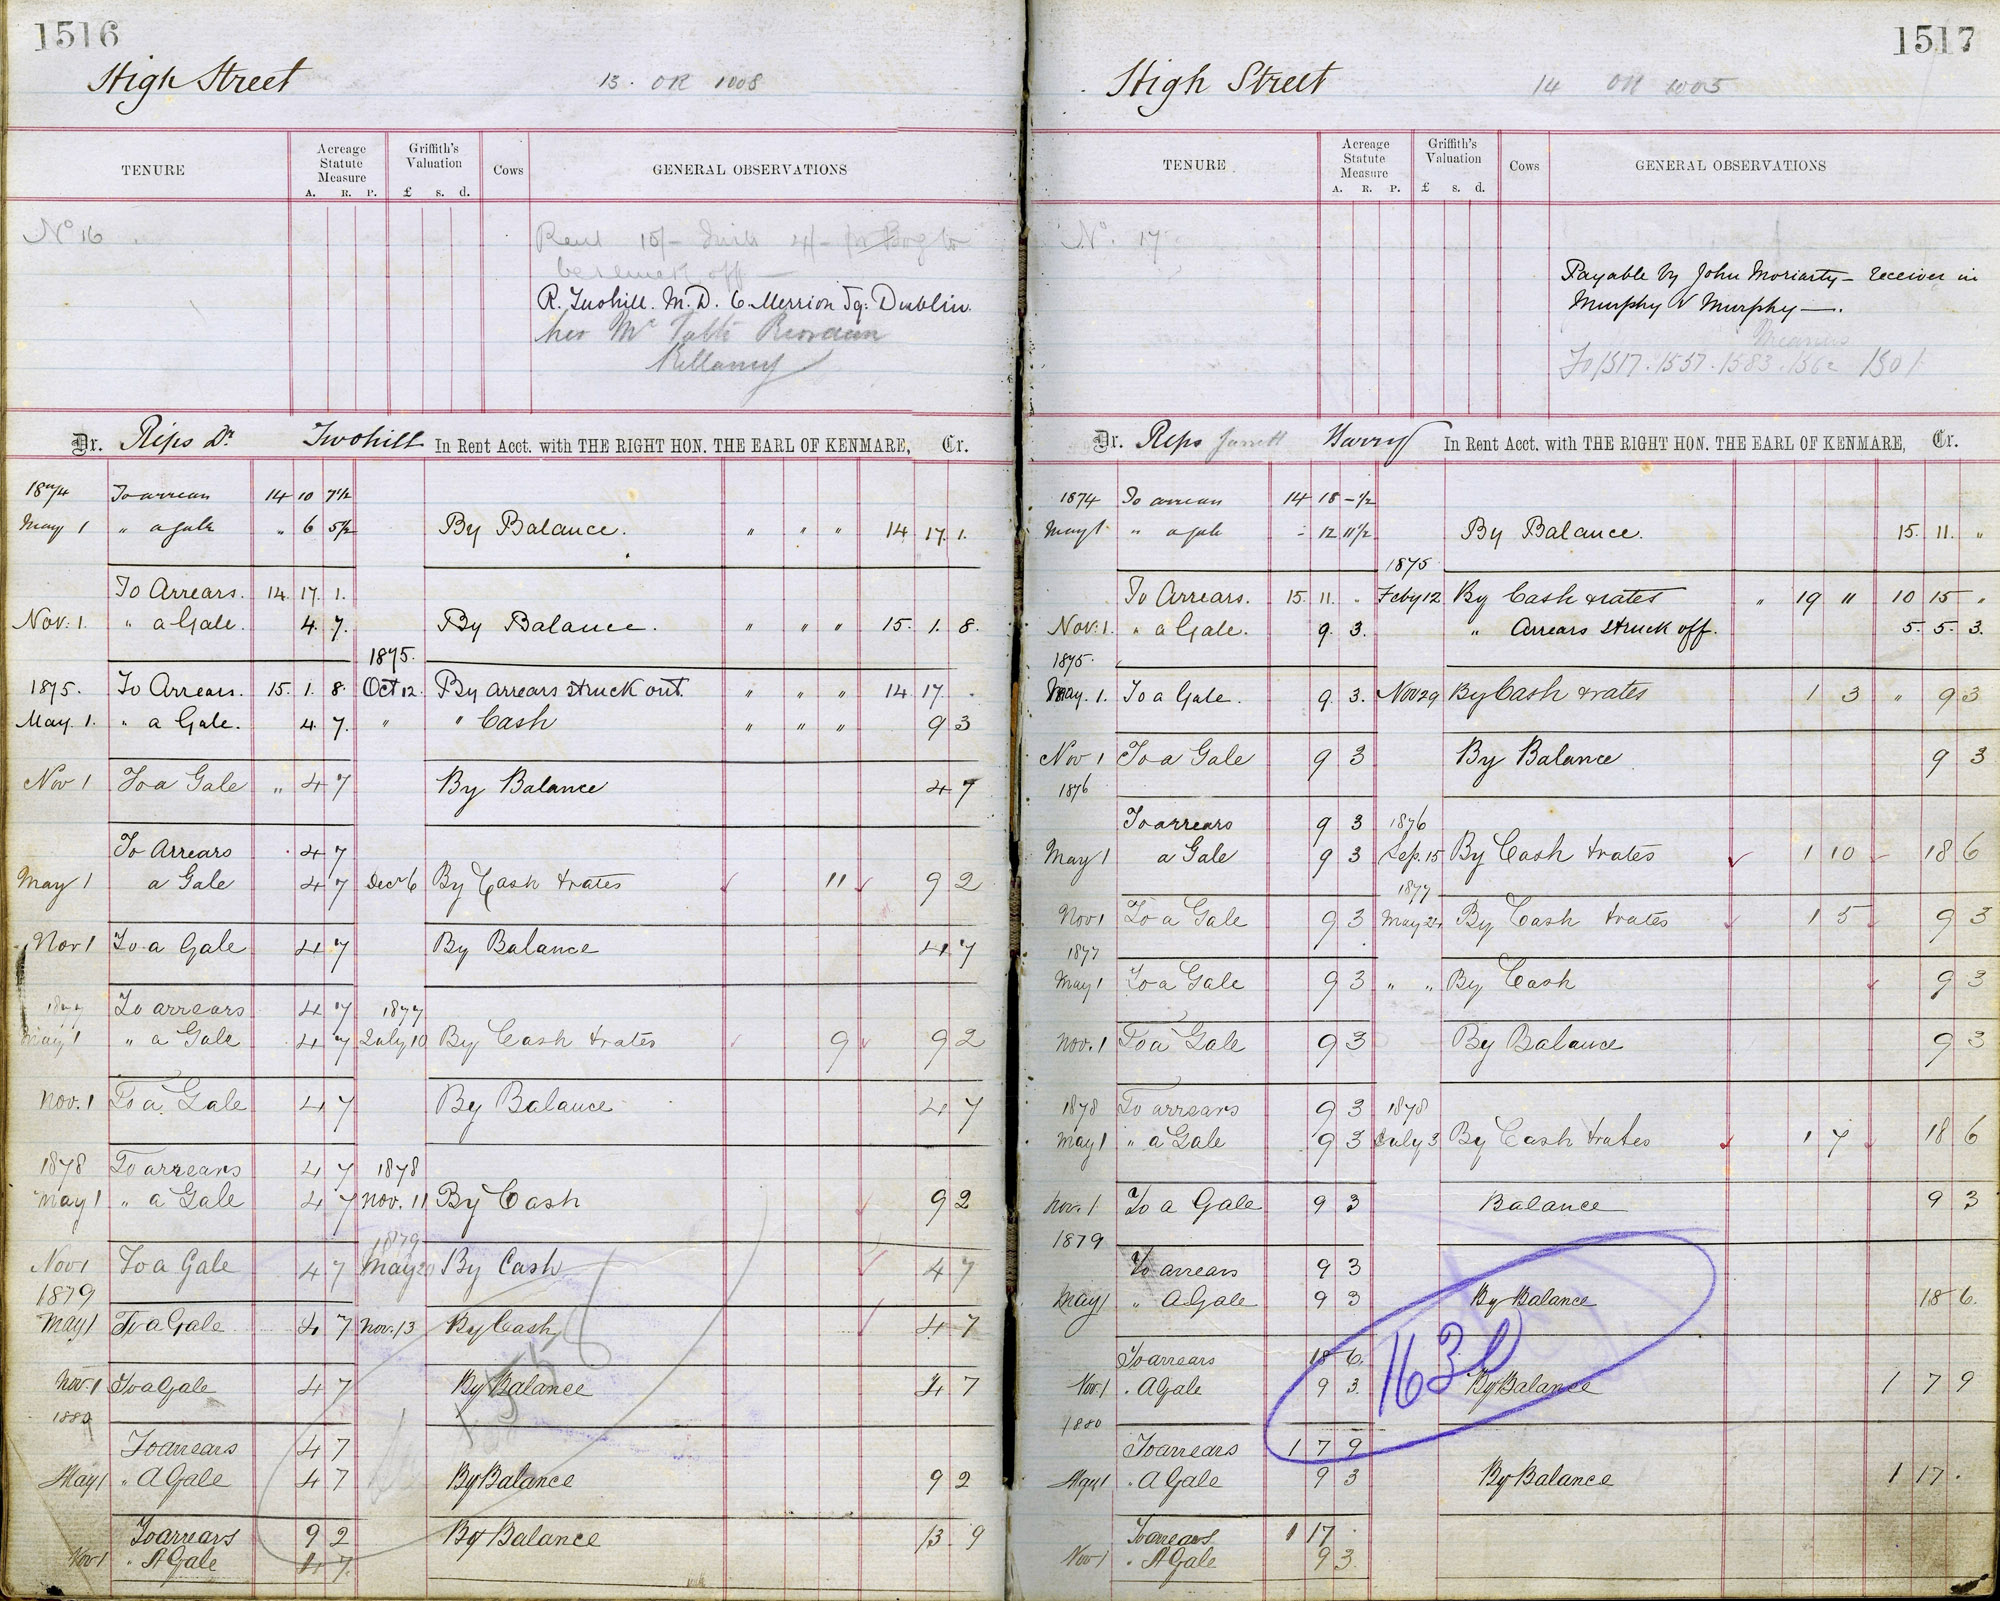 1516
High Street 13. OR 1008
TENURE Acreage Statute Measure A. R. P. Griffith's Valuation £ s. d. Cows GENERAL OBSERVATIONS
No 16 Rent 15/- 4/- for Bog to
be off —
R. Tuohill. M.D. 6 Merrion Sq: Dublin.
Killarney
Dr. Reps Dr Twohill In Rent Acct. with THE RIGHT HON. THE EARL OF KENMARE, Cr.
1874 To arrear 14 10 7½
May 1 " a gale " 6 5½ By Balance. " " " 14 17. 1.
To Arrears. 14. 17. 1.
Nov. 1. " a Gale. 4. 7. By Balance. " " " 15. 1. 8.
1875.
1875. To Arrears. 15. 1. 8. Oct 12. By arrears struck out. " " " 14 17 .
May. 1. " a Gale. 4. 7. " " Cash " " " 9 3
Nov 1 To a Gale " 4 7 By Balance 4 7
To Arrears 4 7
May 1 a Gale 4 7 Decr 6 By Cash & rates 11 9 2
Nov 1 To a Gale 4 7 By Balance 4 7
1877 To arrears 4 7 1877
May 1 " a Gale 4 7 July 10 By Cash & rates 9 9 2
Nov. 1 To a Gale 4 7 By Balance 4 7
1878 To arrears 4 7 1878
May 1 " a Gale 4 7 Nov. 11 By Cash 9 2
1879
Nov 1 To a Gale 4 7 May 20 By Cash 4 7
1879
May 1 To a Gale 4 7 Nov. 13 By Cash 4 7
Nov. 1 To a Gale 4 7 By Balance 4 7
1880
To arrears 4 7
May 1 " A Gale 4 7 By Balance 9 2
To arrears 9 2 By Balance 13 9
Nov 1 " A Gale 4 7.
1517
High Street 14 OR 1005
TENURE Acreage Statute Measure A. R. P. Griffith's Valuation £ s. d. Cows GENERAL OBSERVATIONS
No. 17
Payable by John Moriarty – receiver in
Murphy v Murphy —.
Fo 1517. 1557. 1583. 1501
Dr. Reps Jarrett Barry In Rent Acct. with THE RIGHT HON. THE EARL OF KENMARE, Cr.
1874 To arrear 14 18 - ½
May 1 " a gale - 12 11½ By Balance. 15. 11. "
1875
To Arrears. 15. 11. " Feby 12 By Cash & rates " 19 " 10 15 "
Nov. 1. " a Gale. 9. 3. " Arrears struck off. 5. 5. 3.
1875.
May. 1. To a Gale. 9. 3. Nov 29 By Cash & rates 1 3 " 9 3
Nov 1 To a Gale 9 3 By Balance 9 3
1876
To arrears 9 3 1876
May 1 a Gale 9 3 Sep. 15 By Cash & rates 1 10 18 6
1877
Nov 1 To a Gale 9 3 May 24 By Cash & rates 1 5 9 3
1877
May 1 To a Gale 9 3 " " By Cash 9 3
Nov. 1 To a Gale 9 3 By Balance 9 3
1878 To arrears 9 3 1878
May 1 " a Gale 9 3 July 3 By Cash & rates 1 7 18 6
Nov. 1 To a Gale 9 3 Balance 9 3
1879
To arrears 9 3
May 1 " A Gale 9 3 By Balance 18 6.
To arrears 18 6.
Nov. 1 . A Gale 9 3. By Balance 1 7 9
1880
To arrears 1 7 9
May 1 . A Gale 9 3 By Balance 1 17 .
To arrears 1 17 .
Nov 1 . A Gale 9 3.